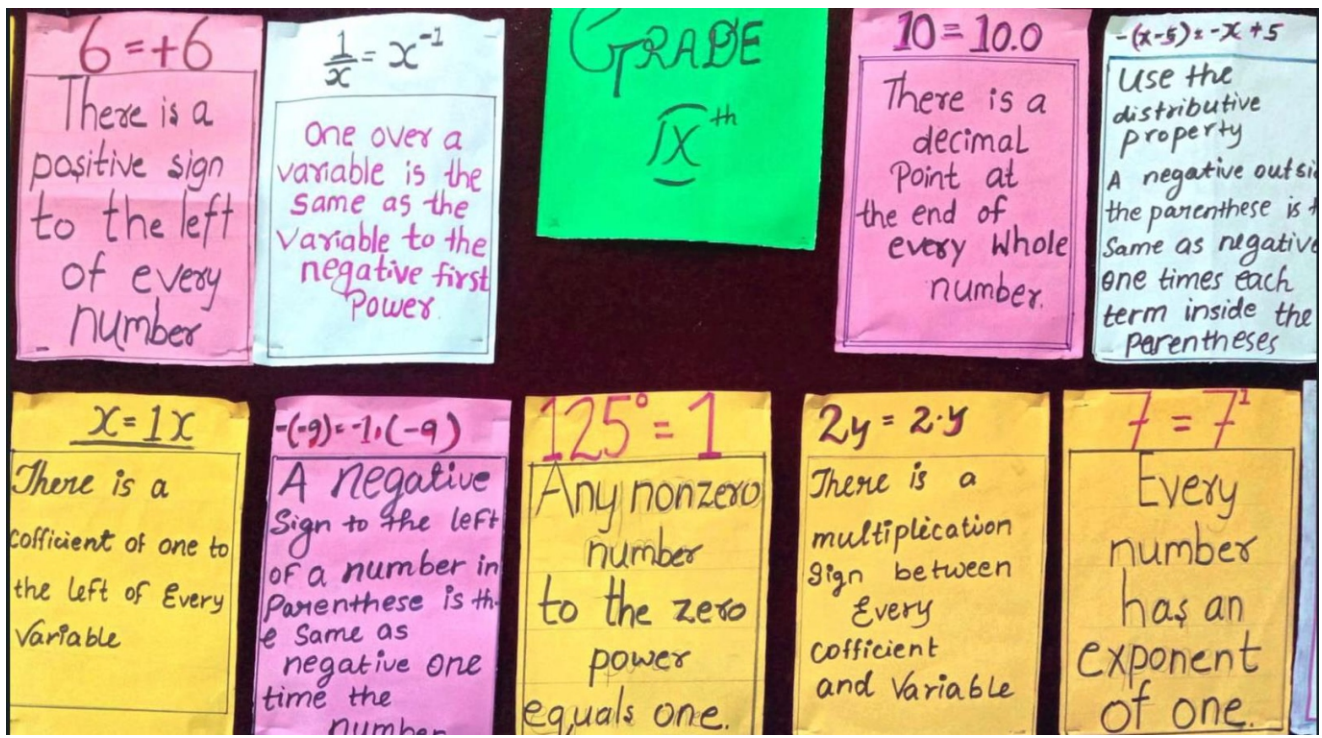 6 = +6
There is a
positive sign
to the left
of every
number
1/x = x⁻¹
One over a
variable is the
same as the
variable to the
negative first
power
GRADE
IXth
10 = 10.0
There is a
decimal
Point at
the end of
every whole
number.
-(x-5) = -x +5
Use the
distributive
property
A negative outsi
the parenthese is
Same as negative
one times each
term inside the
parentheses
x = 1x
There is a
cofficient of one to
the left of Every
Variable
-(-9) = -1·(-9)
A negative
Sign to the left
of a number in
Parenthese is th-
e Same as
negative one
time the
number
125⁰ = 1
Any nonzero
number
to the zero
power
equals one.
2y = 2·y
There is a
multiplication
Sign between
Every
cofficient
and Variable
7 = 7¹
Every
number
has an
exponent
of one.